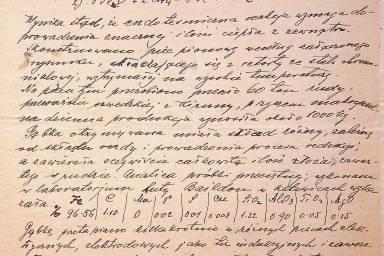 Wynika stąd, że endotermiczna reakcja wymaga do-
prowadzenia znacznej ilości ciepła z zewnątrz.
Skonstruowano piec pionowy według załączonego
rysunku, składającego się z retorty ze stali chromo-
niklowej, wytrzymałej na wysokie temperatury.
Na piecu tym przerobiono ponad 60 ton rudy,
przeważnie szwedzkiej z Kiruny, przyczem maksymalna
dzienna produkcja wynosiła około 1000 kg.
Gąbka otrzymywana miała skład różny, zależnie
od składu rudy i prowadzenia procesu redukcji,
a zawierała oczywiście całkowitą ilość złoża, zawar-
tego w rudzie. Analiza próbki przeciętnej, wykonana
w laboratorium huty Baildon w Katowicach wyka-
zała: Fe C Mn P S Cu SiO₂ Al₂O₃ TiO₂ MgO
% 96·56 1·10 0 0·02 0·01 0·08 1·32 0·90 0·05 0·15
Gąbkę przetapiano kilkakrotnie w różnych piecach elek-
trycznych, elektrodowych jako też indukcyjnych i zawsze